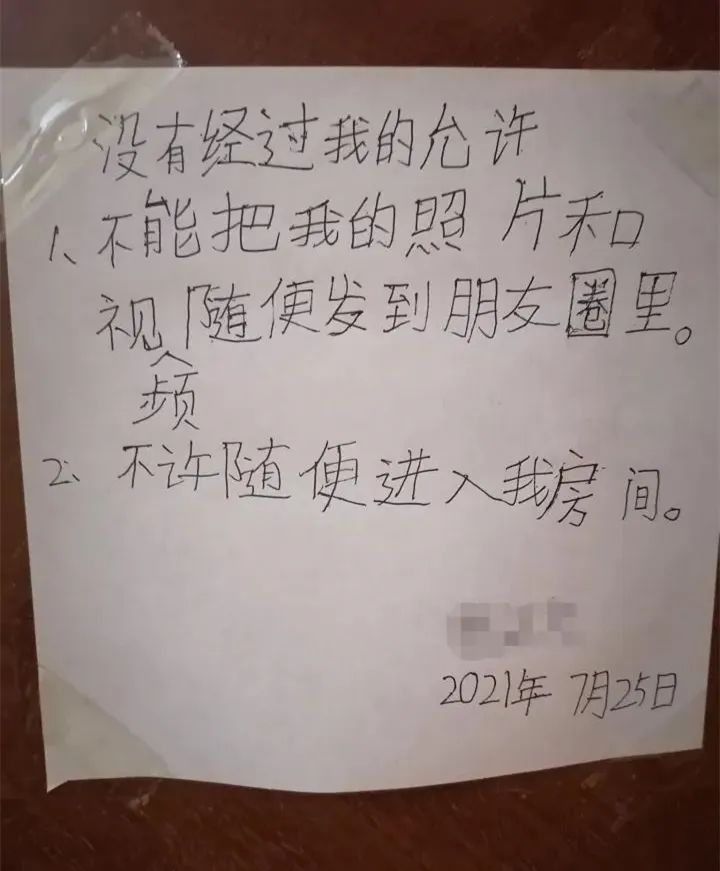 没有经过我的允许
1、不能把我的照片和
视频随便发到朋友圈里。
2、不许随便进入我房间。
2021年7月25日